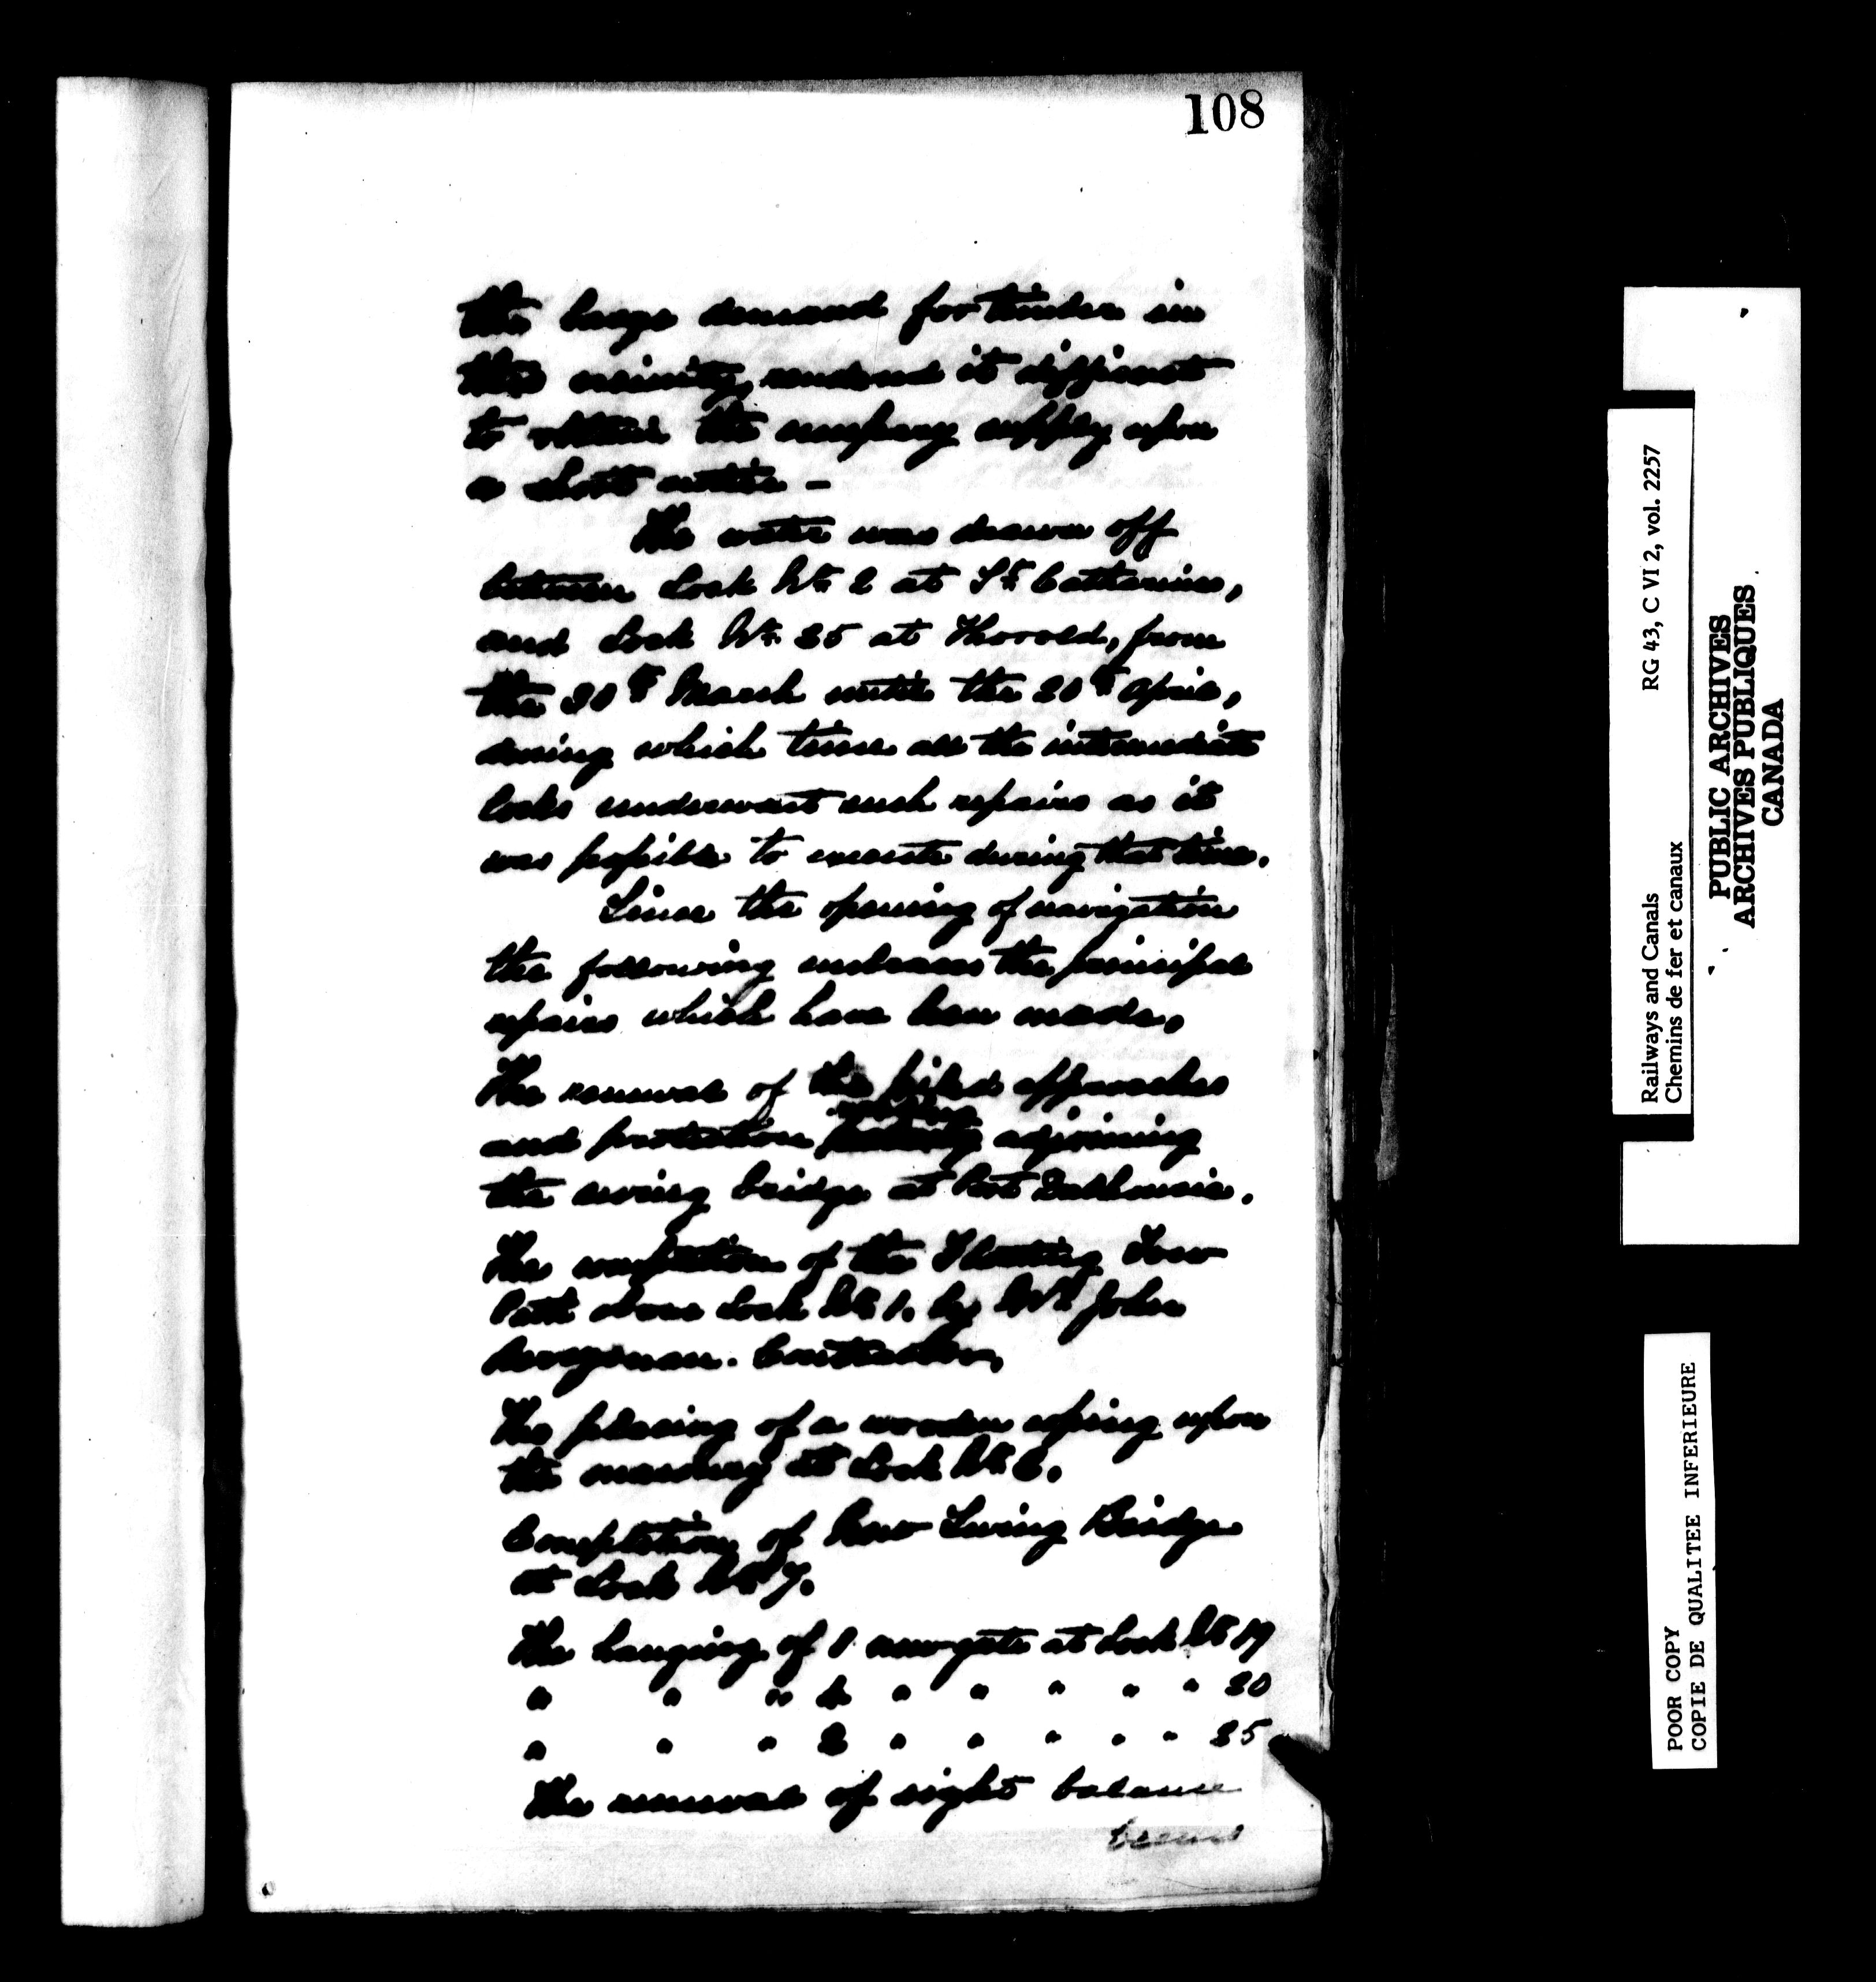 108
the large demand for timber in
this vicinity rendered it difficult
to obtain the necessary supply upon
a short notice –
The water was drawn off
between Lock No. 2 at St. Catharines,
and Lock No. 25 at Thorold, from
the 30th March until the 20th April,
during which time all the intermediate
locks underwent such repairs as it
was possible to execute during that time.
Since the opening of navigation
the following embraces the principal
repairs which have been made,
The renewal of the piled approaches
and protection adjoining
the swing bridge at Port Dalhousie.
The completion of the Floating Tow
Path above Lock No. 1. by Mr. John
Contractor,
The placing of a wooden coping upon
the masonry at Lock No. 6.
Completion of New Swing Bridge
at Lock No. 7.
The hanging of 1 new gate at Lock No 19
" " " " " " " " 20
" " " 2 " " " " " 25
The renewal of eight balance
beams
Railways and Canals RG 43, C VI 2, vol. 2257
Chemins de fer et canaux
PUBLIC ARCHIVES
ARCHIVES PUBLIQUES
CANADA
POOR COPY
COPIE DE QUALITEE INFERIEURE